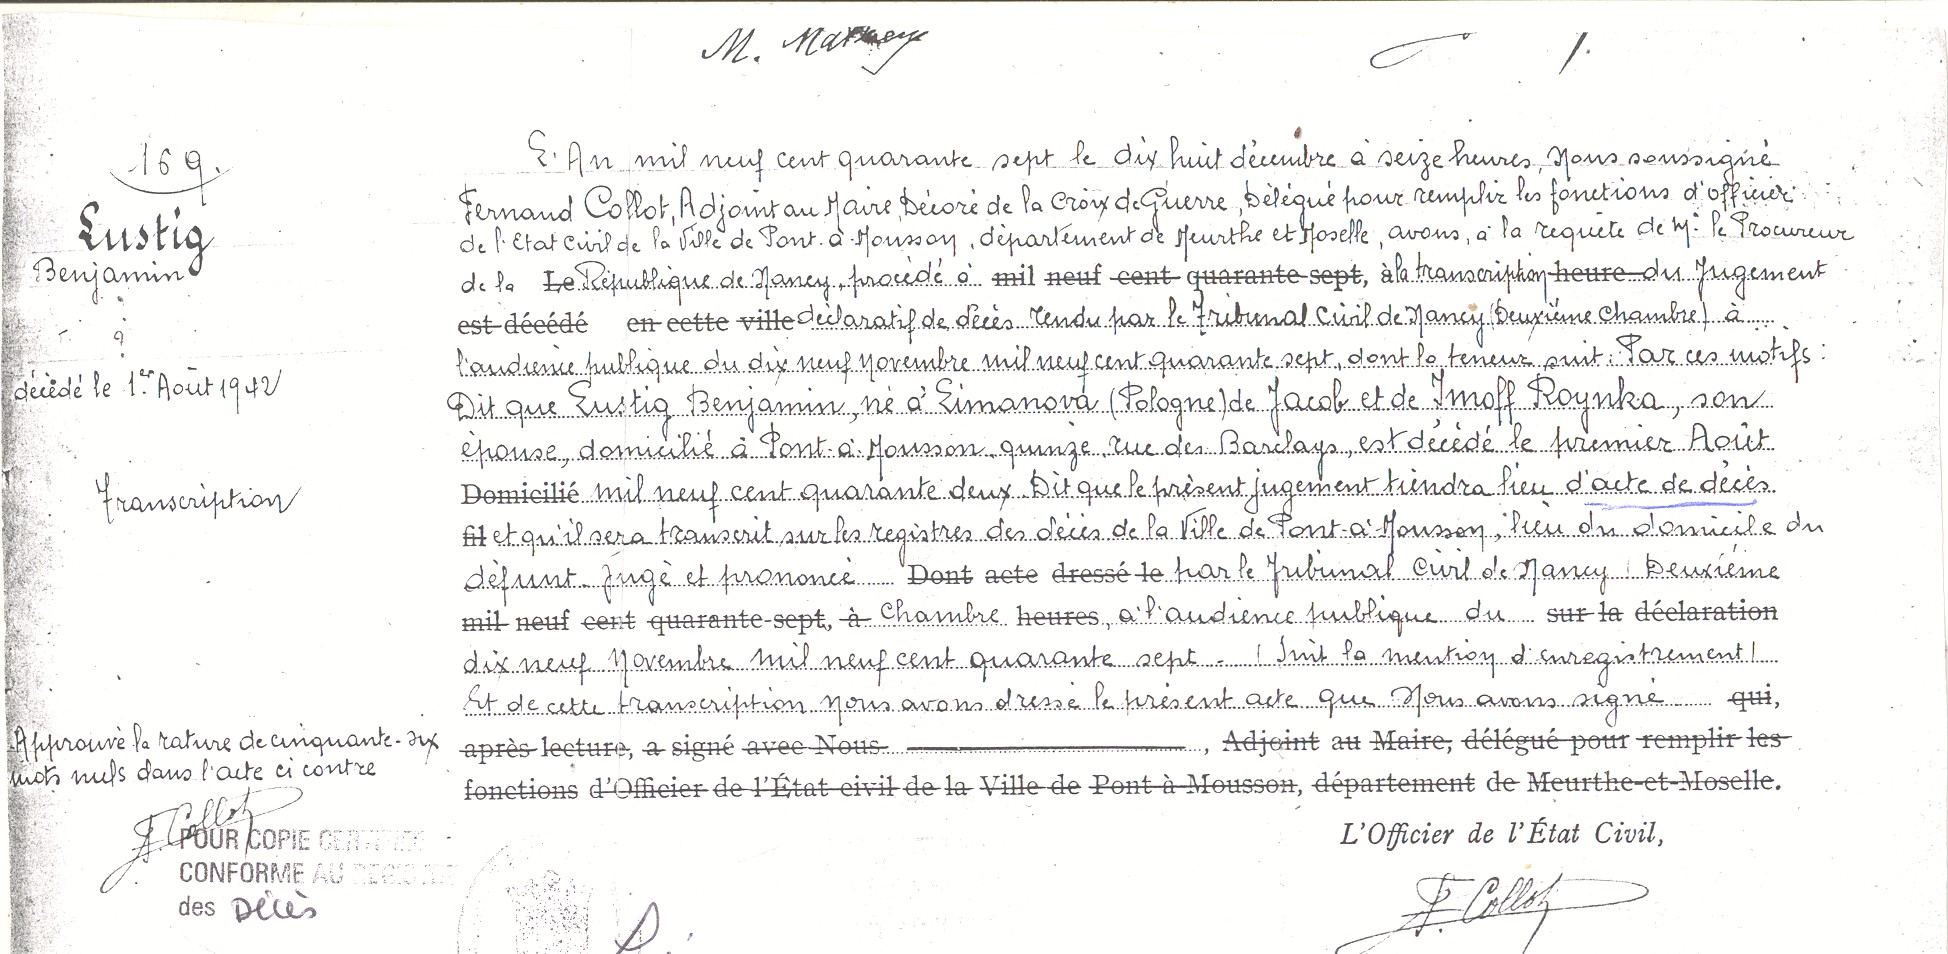 M.
169.
Lustig
Benjamin
décédé le 1er Août 1942
Transcription
Approuvé la rature de cinquante-six
mots nuls dans l'acte ci contre
F. Collot
POUR COPIE CERTIFIEE
CONFORME AU REGISTRE
des Décès
L'An mil neuf cent quarante sept le dix huit décembre à seize heures, Nous soussigné
Fernand Collot, Adjoint au Maire, Décoré de la Croix de Guerre, Délégué pour remplir les fonctions d'officier
de l'Etat Civil de la Ville de Pont-à-Mousson, département de Meurthe et Moselle, avons, à la requête de Mr. le Procureur
de la Le République de Nancy, procédé à mil neuf cent quarante-sept, à la transcription heure du Jugement
est décédé en cette ville déclaratif de décès rendu par le Tribunal Civil de Nancy (Deuxième Chambre) à
l'audience publique du dix neuf Novembre mil neuf cent quarante sept, dont la teneur suit: Par ces motifs:
Dit que Lustig Benjamin, né à Limanova (Pologne) de Jacob et de Imoff Roynka, son
épouse, domicilié à Pont-à-Mousson, quinze, rue des Barclays, est décédé le premier Août
Domicilié mil neuf cent quarante deux. Dit que le présent jugement tiendra lieu d'acte de décès
fil et qu'il sera transcrit sur les registres des décès de la Ville de Pont-à-Mousson, lieu du domicile du
défunt. Jugé et prononcé Dont acte dressé le par le Tribunal Civil de Nancy (Deuxième
mil neuf cent quarante-sept, à Chambre heures, à l'audience publique du sur la déclaration
dix neuf Novembre mil neuf cent quarante sept. (Suit la mention d'enregistrement)
Et de cette transcription nous avons dressé le présent acte que Nous avons signé qui,
après lecture, a signé avec Nous , Adjoint au Maire, délégué pour remplir les
fonctions d'Officier de l'État civil de la Ville de Pont-à-Mousson, département de Meurthe-et-Moselle.
L'Officier de l'État Civil,
F. Collot